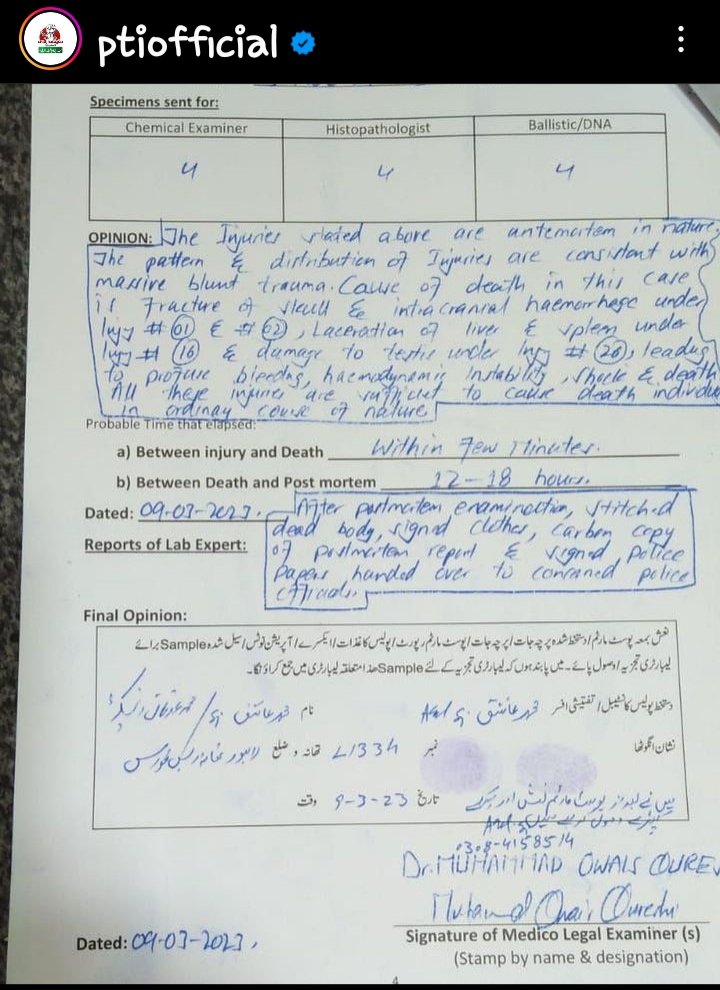 ptiofficial
Specimens sent for:
Chemical Examiner
Histopathologist
Ballistic/DNA
4
4
4
OPINION: The Injuries stated above are antemortem in nature,
The pattern & distribution of Injuries are consistent with
massive blunt trauma. Cause of death in this case
is Fracture of skull & intracranial haemorrhage under
Injry # 01 & # 02, Laceration of liver & spleen under
Injry # 16 & damage to testis under Injry # 20, leading
to profuse bleeding, haemodynamic instability, shock & death
All these injuries are sufficient to cause death individua
in ordinary course of nature
Probable Time that elapsed:
a) Between injury and Death Within Few Minutes.
b) Between Death and Post mortem 12-18 hours.
Dated: 09-03-2023. After postmortem examination, stitched
dead body, signed clothes, carbon copy
Reports of Lab Expert: of postmortem report & signed police
papers handed over to police
officials.
Final Opinion:
نعش بمعہ پوسٹ مارٹم / دستخط شدہ پرچہ جات / پوسٹ مارٹم رپورٹ / پولیس کاغذات / ایکسرے / آپریشن نوٹس / سیل شدہ Sample برائے
لیبارٹری تجزیہ / وصول پائے۔ میں پابند ہوں کہ لیبارٹری تجزیہ کے لئے Sample ھذا متعلقہ لیبارٹری میں جمع کراؤنگا۔
دستخط پولیس کانسٹیبل / تفتیشی افسر محمد عاشق نام محمد عاشق
نشان انگوٹھا نمبر L1334 تھانہ و ضلع لاہور
تاریخ 9-3-23 وقت
0308-4158514
Dr. MUHAMMAD OWAIS QURE
Dated: 09-03-2023.
Signature of Medico Legal Examiner (s)
(Stamp by name & designation)
4